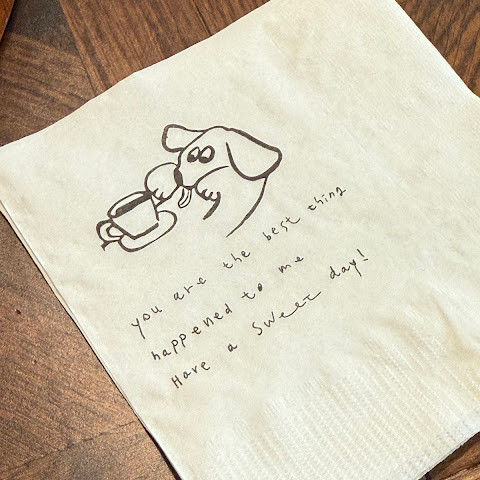 you are the best thing
happened to me
Have a sweet day!